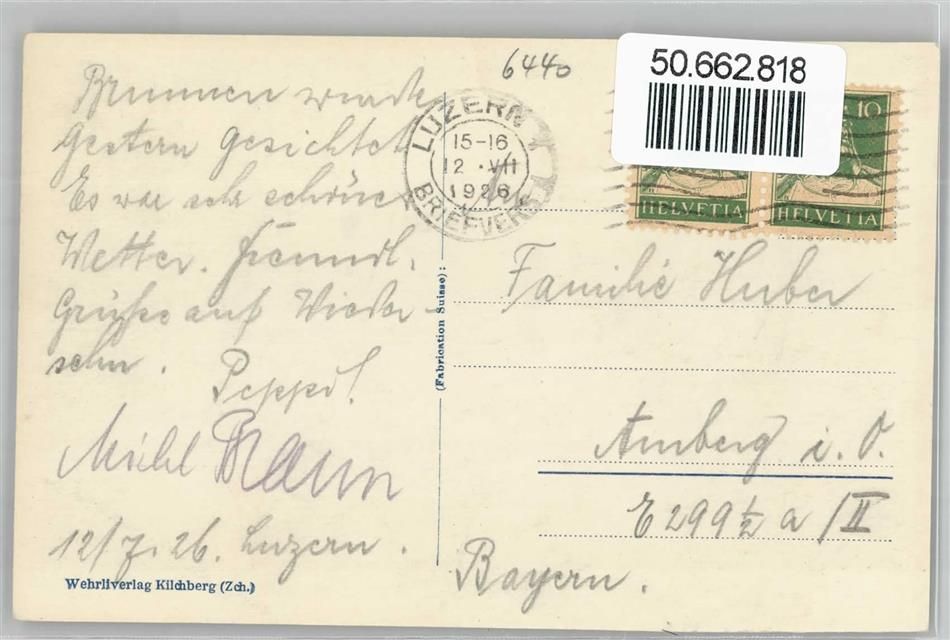 6440
50.662.818
Brunnen wurde
gestern gesichtet
Es war sehr schönes
Wetter. Freundl.
Grüße auf Wieder-
sehn.
Peppi!
Michl Mann
12/7.26. Luzern.
Wehrliverlag Kilchberg (Zch.)
(Fabrication Suisse)
LUZERN 1
15-16
12.VII
1926
BRIEFVERS.
10
HELVETIA
HELVETIA
Familie Huber
Amberg i. O.
E 299 ½ a /II
Bayern.